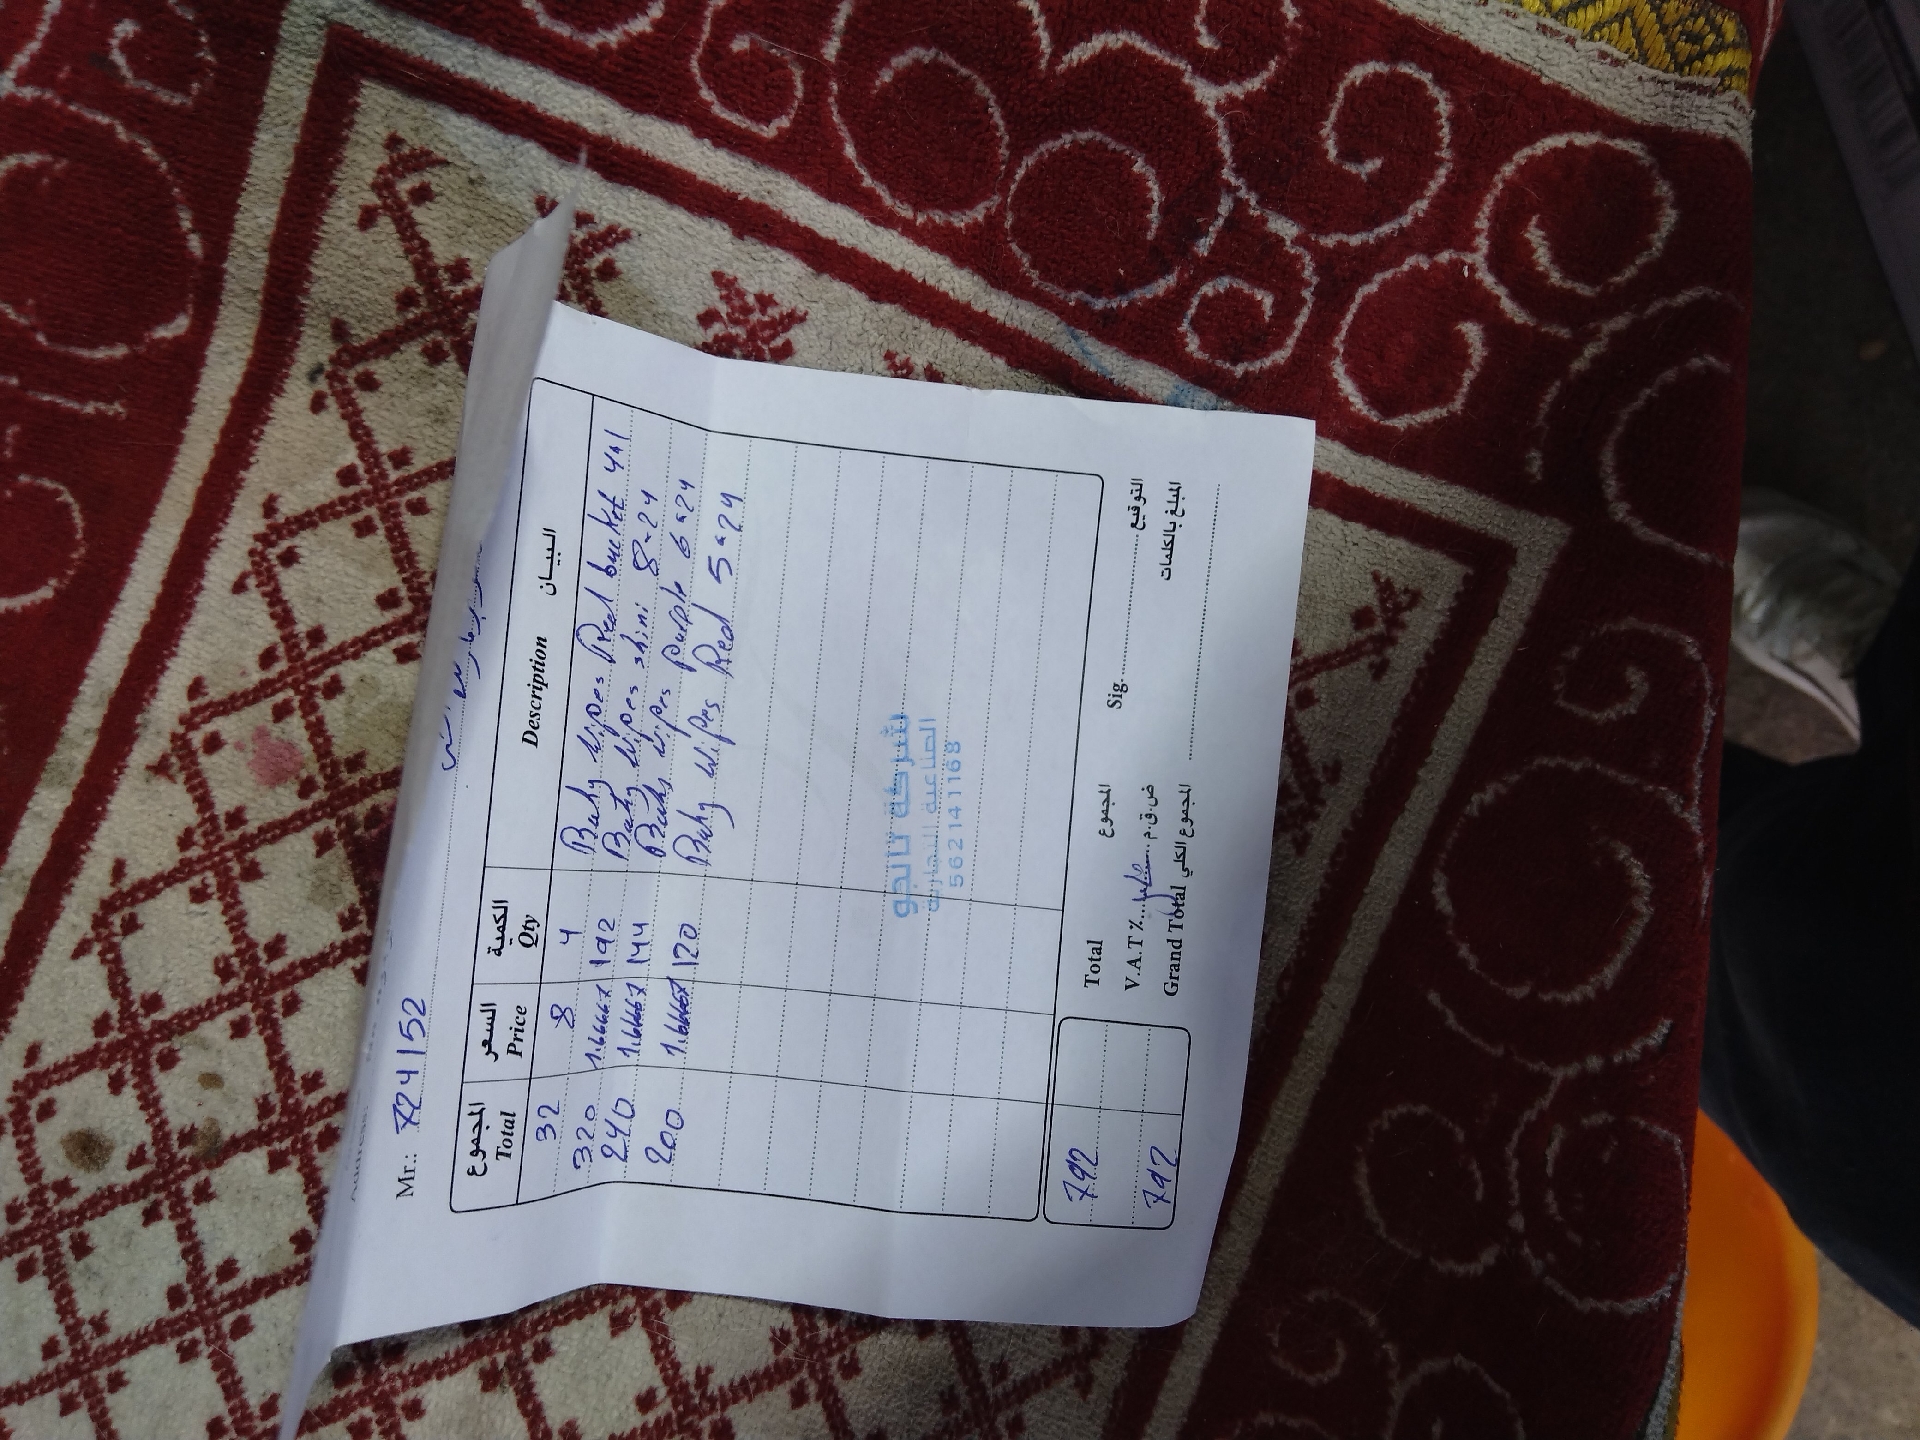 Mr.: 724152
المجموع السعر الكمية البيان
Total Price Qty Description
32 8 4 Baby wipes Red bucket 4*1
320 1.6667 192 Baby wipes shini 8*24
240 1.6667 144 Baby wipes purple 6*24
200 1.6667 120 Baby wipes Red 5*24
شركة تالجو
الصناعية التجارية
562141168
792 Total المجموع Sig. التوقيع
V.A.T % ض.ق.م
792 Grand Total المجموع الكلي المبلغ بالكلمات